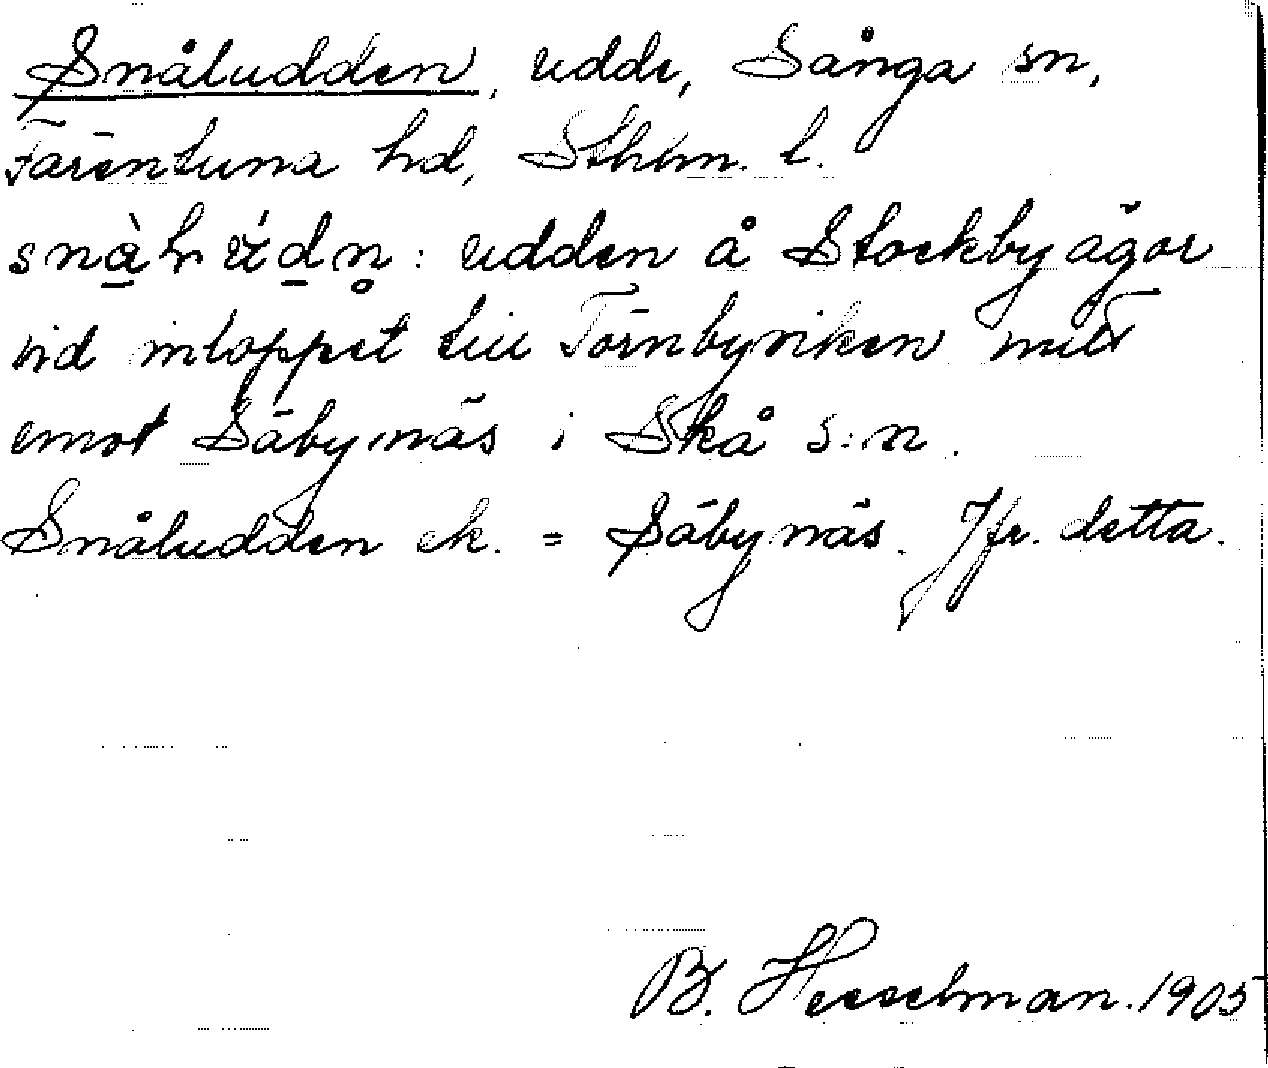 Snåludden, udde, Sånga sn,
Färentuna hd, Sthlm. l.
udden å Stockby ägor
vid inloppet till Törnbyviken mitt
emot Säbynäs i Skå s:n.
Snåludden ek. = Säbynäs. Jfr. detta.
B. Hesselman. 1905